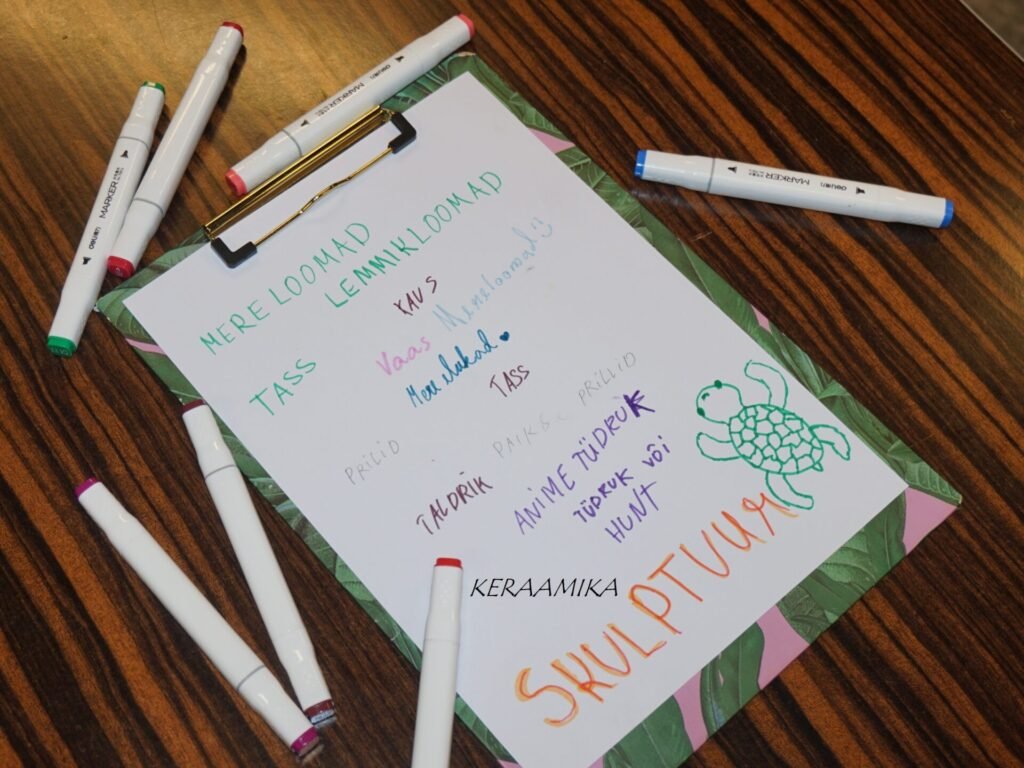 MERELOOMAD
LEMMIKLOOMAD
KAUS
Mereloomad
TASS
Vaas
Merelukad
TASS
PRILLID
PRILLID
TALDRIK
ANIME TÜDRUK
TÜDRUK VÕI
HUNT
KERAAMIKA
SKULPTUUR
deli MARKER
MARKER deli
MARKER deli